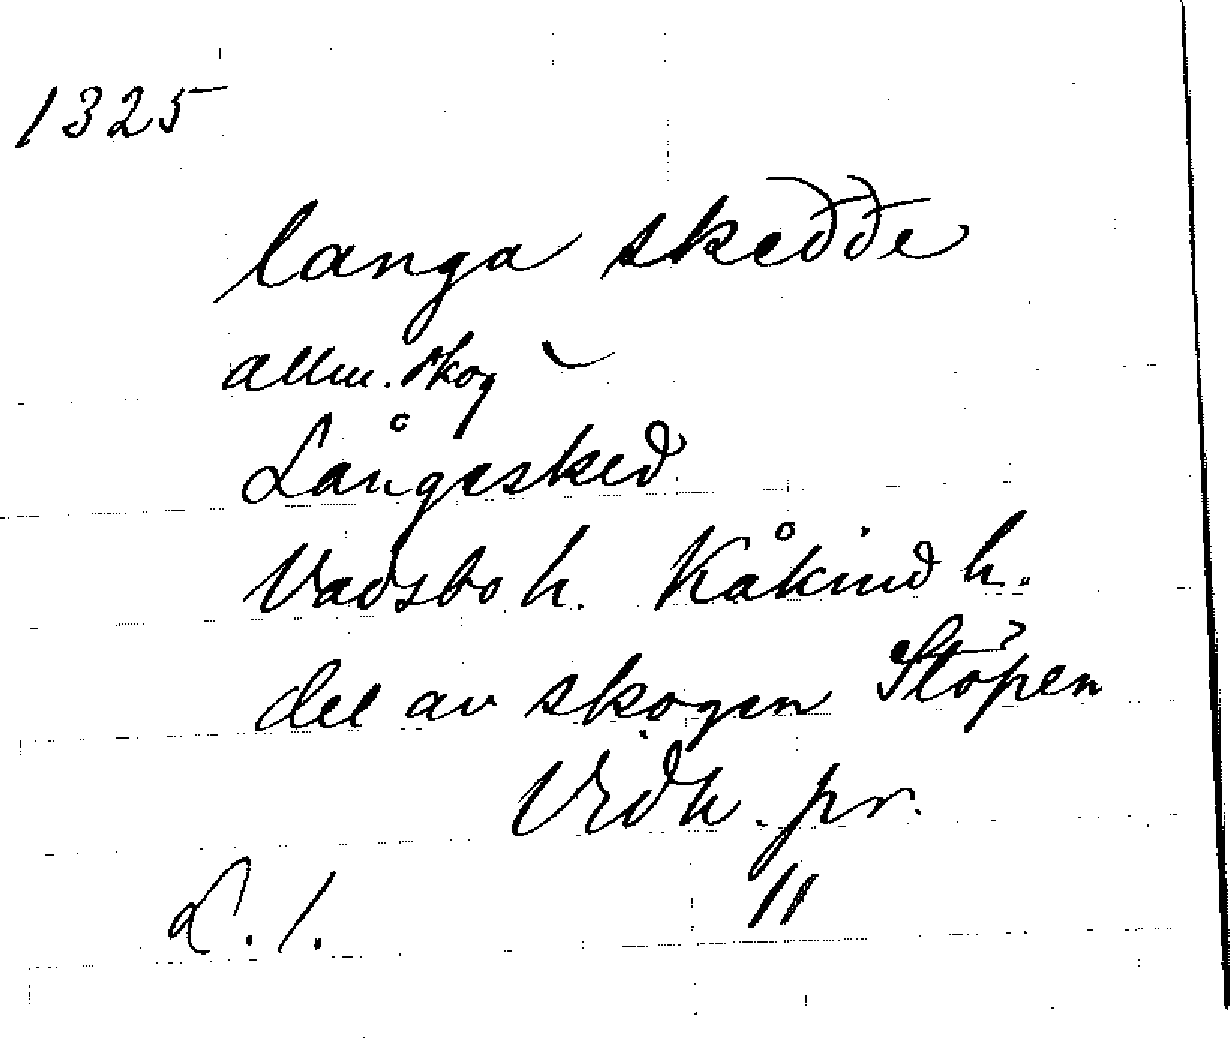 1325
langa skeððe
allm. skog
Långasked
Vadsbo h. Kåkind h.
del av skogen Stöpen
Vidh. pr.
L. 1. 11